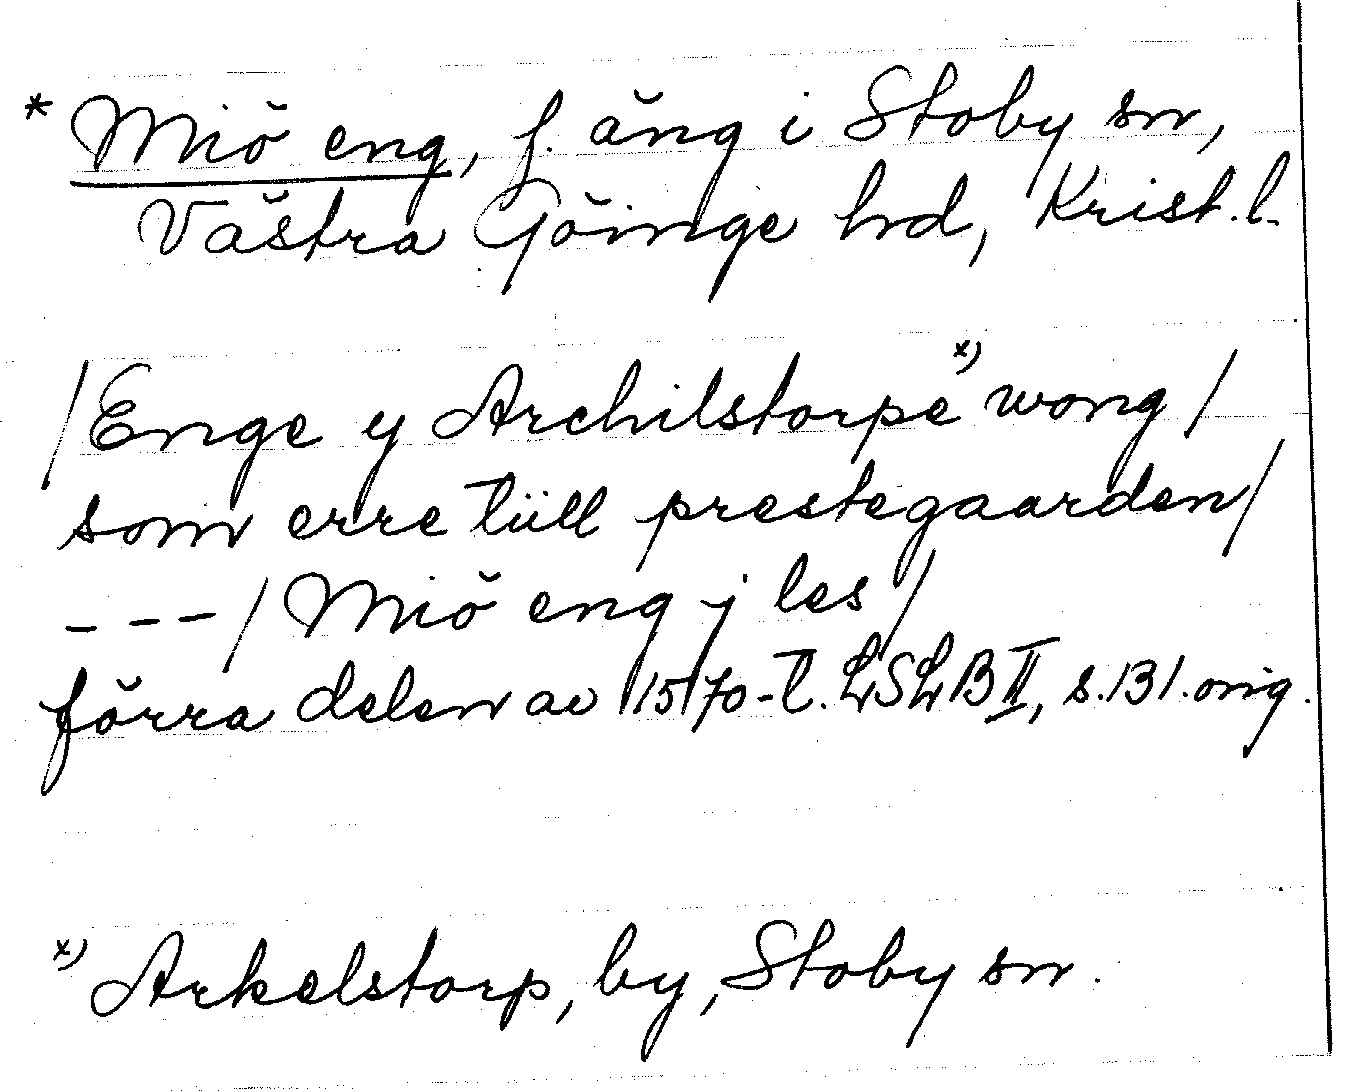 * Miö eng, f. äng i Stoby sn,
Västra Göinge hd, Krist.l.
/Enge y Archilstorpe x) wong/
som erre tüll prestegaarden/
---/Miö eng j les/
förra delen av 1570-t. LSLB II, s.131.orig.
x) Arkelstorp, by, Stoby sn.